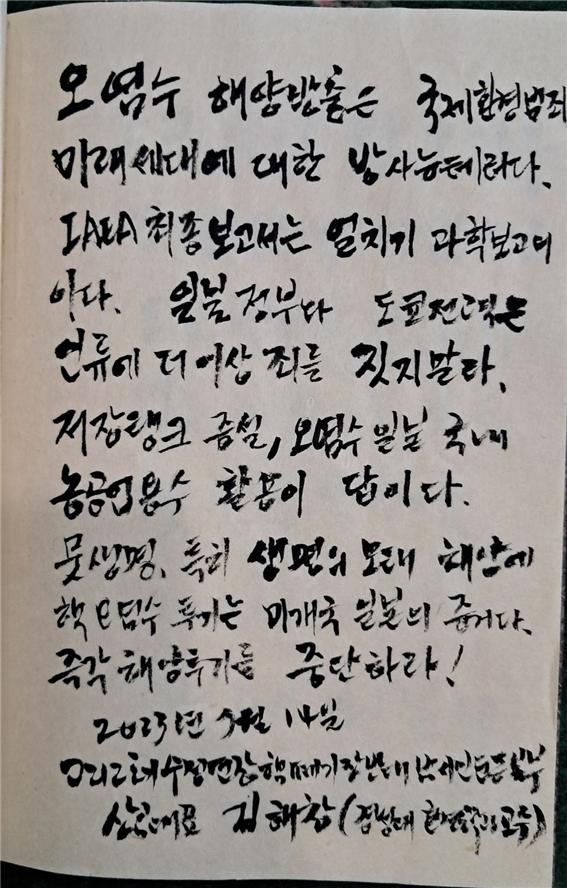 오염수 해양방출은 국제환경범죄
미래세대에 대한 방사능테러다.
IAEA 최종보고서는 얼치기 과학보고서
이다. 일본정부와 도쿄전력은
인류에 더이상 죄를 짓지말라.
저장탱크 증설, 오염수 일본 국내
농공업용수 활용이 답이다.
뭇생명, 특히 생명의 모태 해양에
핵오염수 투기는 미개국 일본의 증거다.
즉각 해양투기를 중단하라!
2023년 9월 14일
고리2호기 수명연장 핵폐기장반대 범시민운동본부
상임대표 김해창(경성대 환경공학과 교수)